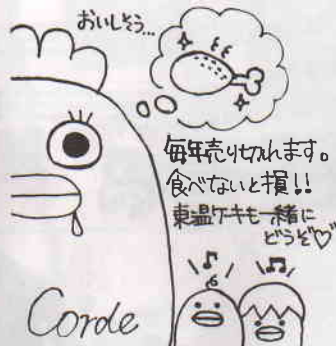 おいしそう...
毎年売り切れます。
食べないと損!!
東温ケーキも一緒に
どうぞ♡
Corde